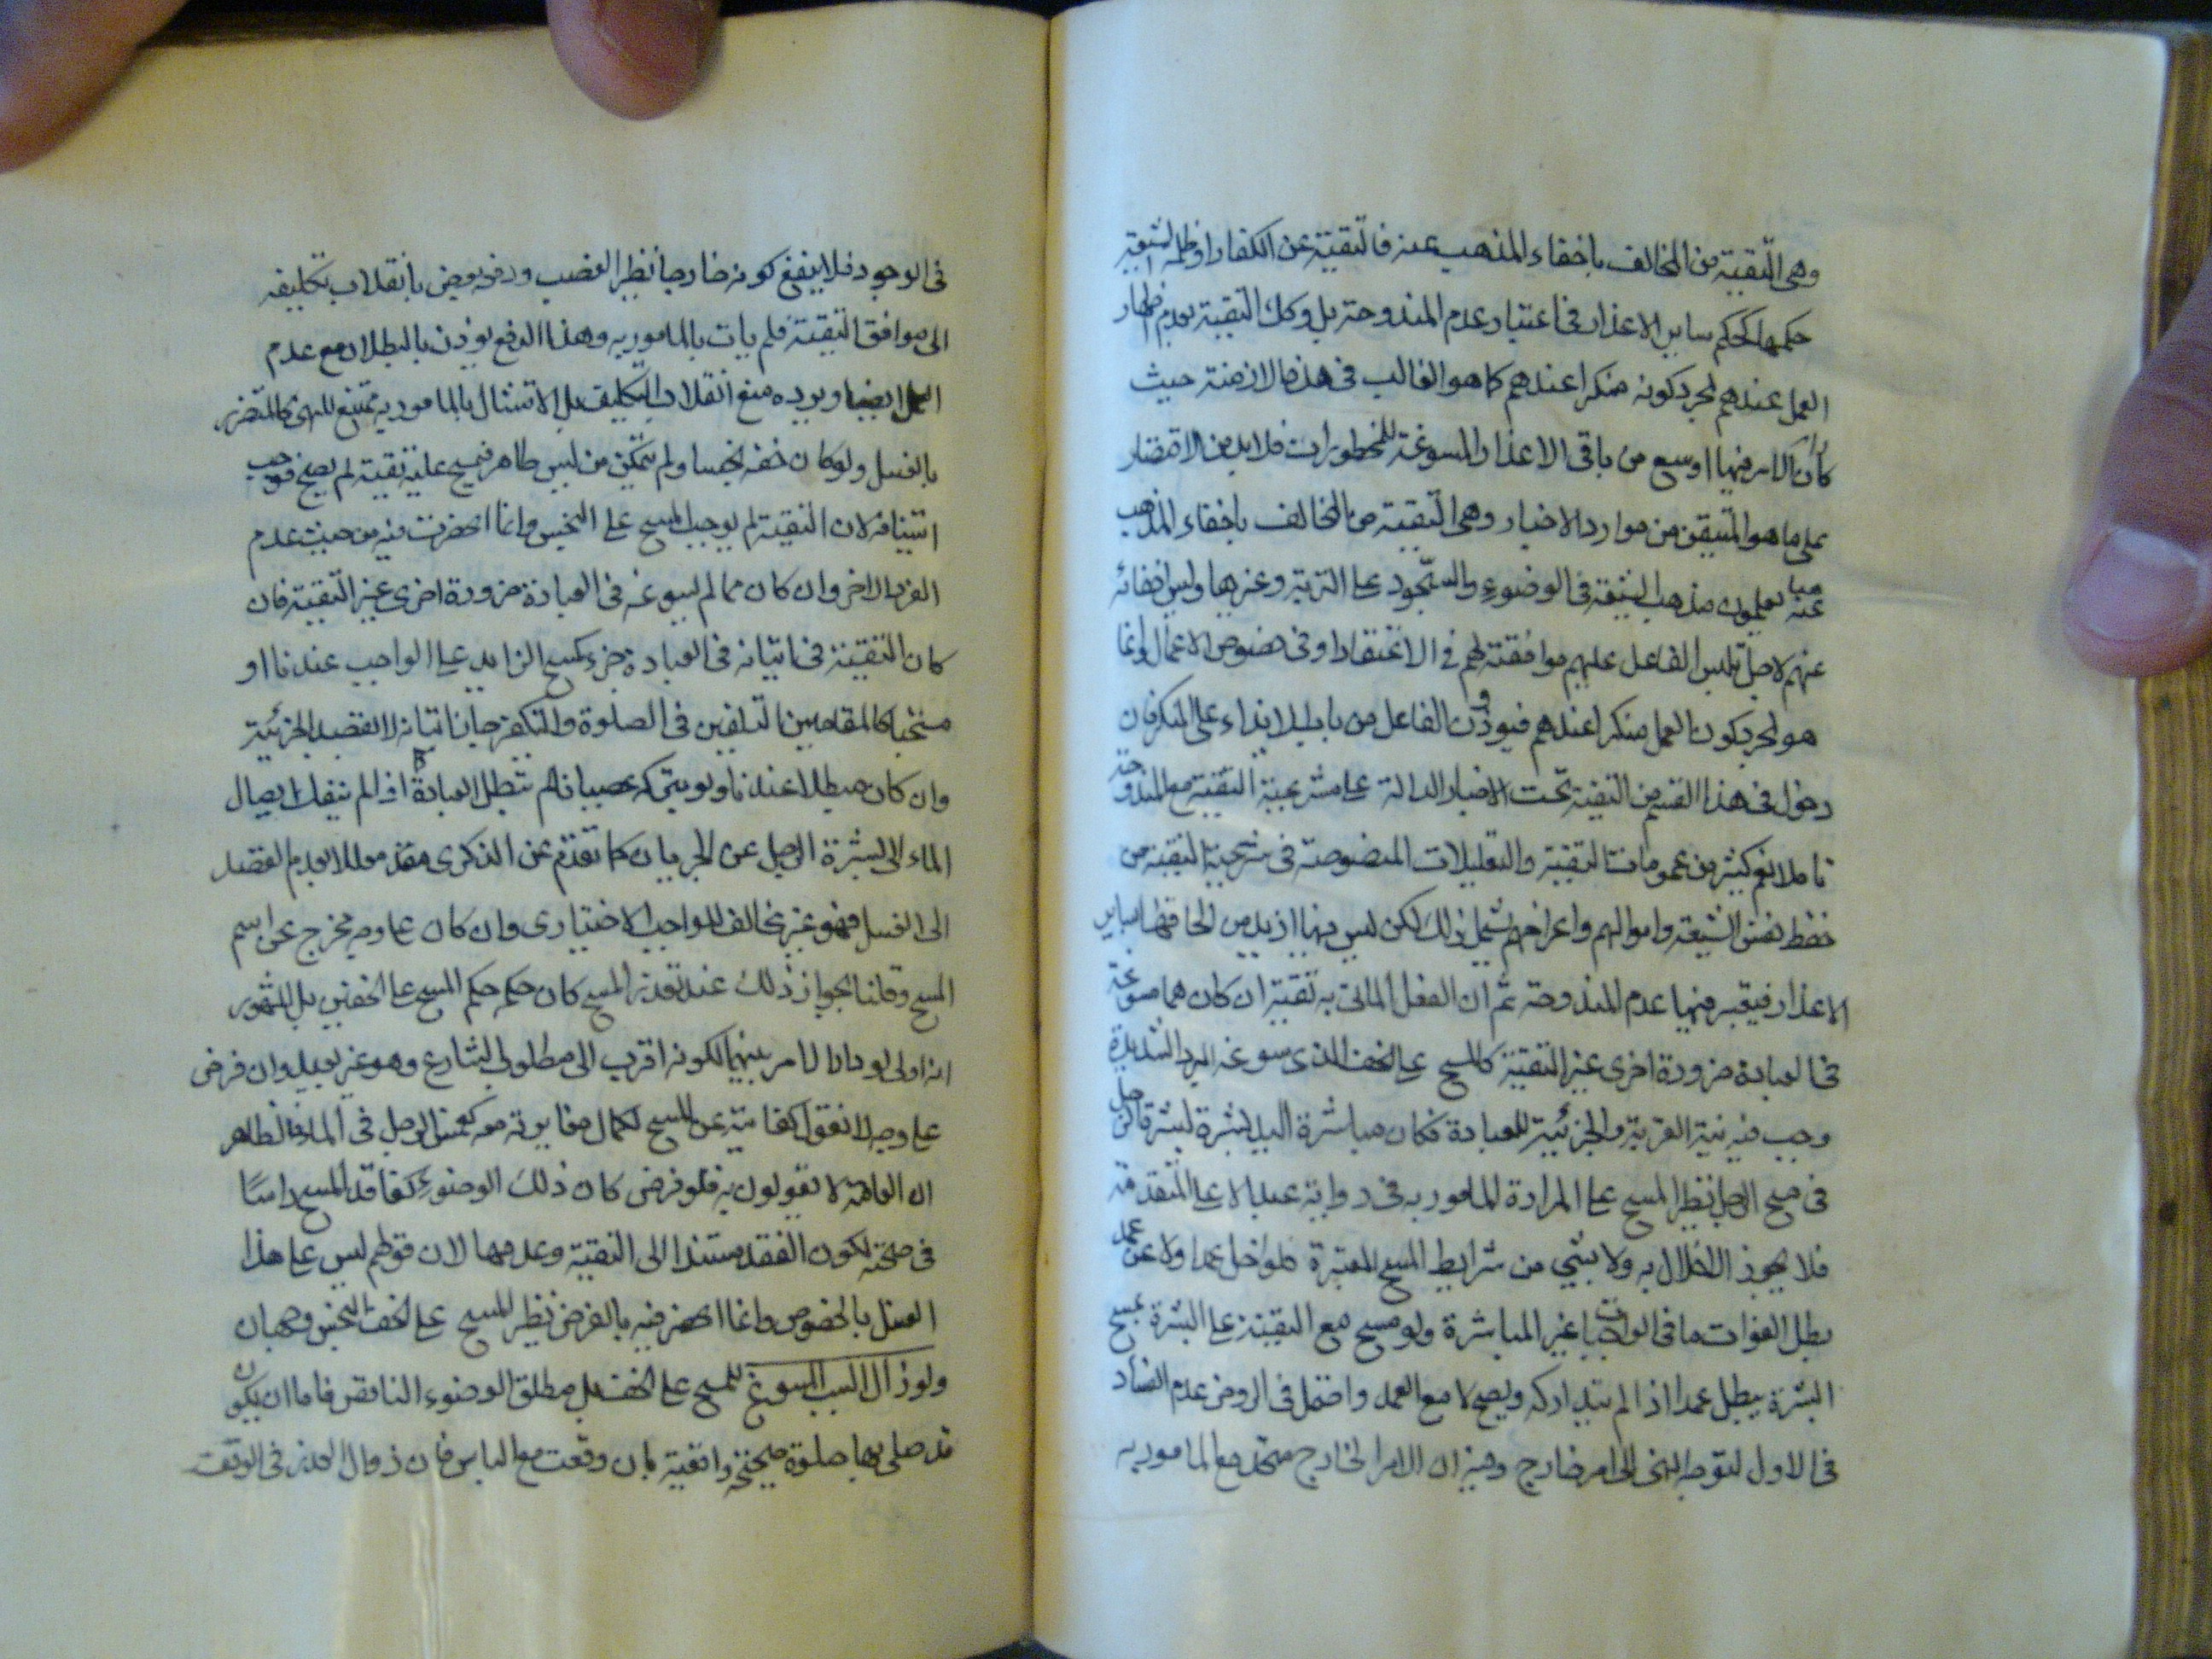 وهى التقية من المخالف باخفاء المذهب عنه فالتقية عن الكفار او ظلمة الشيعة
حكمها كحكم ساير الاعذار فى اعتبار عدم المندوحة بل وكك التقية بعدم اظهار
العمل عندهم لمجرد كونه منكرا عندهم كما هو الغالب فى هذه الازمنة حيث
كان الامر فيها اوسع من باقى الاعذار المسوغة للمحظورات فلا بد من الاقتصار
على ما هو المتيقن من موارد الاخبار وهى التقية من المخالف باخفاء المذهب
عنه يعلمون مذهب الشيعة فى الوضوء والسجود على التربة وغيرها وليس اخفائه
عنهم لاجل تلبس الفاعل عليهم موافقته لهم فى الاعتقاد او فى خصوص الاعمال وانما
هو لمجرد كون العمل منكرا عندهم فيوذون الفاعل من باب الايذاء على المنكر فان
دخول فى هذا القسم من التقية تحت الاخبار الدالة على مشروعية التقية مع المندوحة
تاملا نعم كثير من عمومات التقية والتعليلات المنصوصة فى شرعية التقية من
حفظ نفس الشيعة واموالهم واعراضهم يشمل ذلك لكن ليس فيها ازيد من الحاقها بساير
الاعذار فيعتبر فيها عدم المندوحة ثم ان الفعل الماتى به تقية ان كان مما سوغته
فى العبادة ضرورة اخرى غير التقية كالمسح على الخف الذى سوغه البرد الشديدة
وجب فيه نية القربة والجزئية للعبادة فكان مباشرة اليد لبشرة الرجل
فى مسح الرجل نظير المسح على المرارة المامور به فى رواية عبد الاعلى المتقدمة
فلا يجوز الاخلال به ولا بشئ من شرايط المسح المعتبرة فلو اخل عمدا ولا عن عمد
بطل لفوات ما فى الواجب غير المباشرة ولو مسح مع التقية على البشرة مسح
البشرة يبطل عمدا اذا لم يتداركه ويصح لا مع العمد واحتمل فى الروض عدم الفساد
فى الاول لتوجه النهى الى امر خارج وفيه ان الامر الخارج متحد مع المامور به
فى الوجود فلا ينفع كونه خارجا نظير الغصب ودفعه بعض بانقلاب تكليفه
الى موافق التقية فلم يات بالمامور به وهذا الدفع يوذن بالبطلان مع عدم
العمل ايضا ويرده منع انقلاب التكليف بل الامتثال بالمامور به ممتنع للنهى كالمتضرر
بالغسل ولو كان خفه نجسا ولم يتمكن من لبس طاهر فمسح عليه تقية لم يصح فوجب
استينافه لان التقية لم يوجب المسح على النجس وانما انحصرت فيه من حيث عدم
الفرد الاخر وان كان مما لم يسوغه فى العبادة ضرورة اخرى غير التقية فان
كان التقية فى اتيانه فى العبادة جزء كمسح الزايد على الواجب عندنا او
مستحبا كالمقامين التلفين فى الصلوة والتكفير جاز اتيانه لا لقصد الجزئية
وان كان مبطلا عندنا ولو تركه عصيانا لم تبطل العبادة اذا لم ينفك ايصال
الماء الى بشرة الرجل عن الجريان كما تقدم عن الذكرى مقدم معللا بعدم القصد
الى الغسل فهو غير مخالف للواجب الاختيارى وان كان على وجه يخرج عن اسم
المسح وقلنا بجواز ذلك عند تعذر المسح كان حكمه حكم المسح على الخفين بل المشهور
انه اولى لو دار الامر بينهما لكونه اقرب الى مطلوب الشارع وهو غير بعيد وان فرض
على وجه لا نقول كفايته عن المسح لكمال مغايرته معه كغمس الرجل فى الماء فالظاهر
ان العامة لا يقولون به فلو فرض كان ذلك الوضوء كفاقد المسح راسا
فى صحته لكون الفقد مستندا الى التقية وعدمها لان قولهم ليس على هذا
الغسل بالخصوص وانما انحصر فيه بالفرض نظير المسح على الخف النجس وجهان
ولو زال السبب المسوغ للمسح على الخف بل مطلق الوضوء الناقص فاما ان يكون
قد صلى بها صلوة صحيحة واقعية بان وقعت مع الياس فان زوال العذر فى الوقت